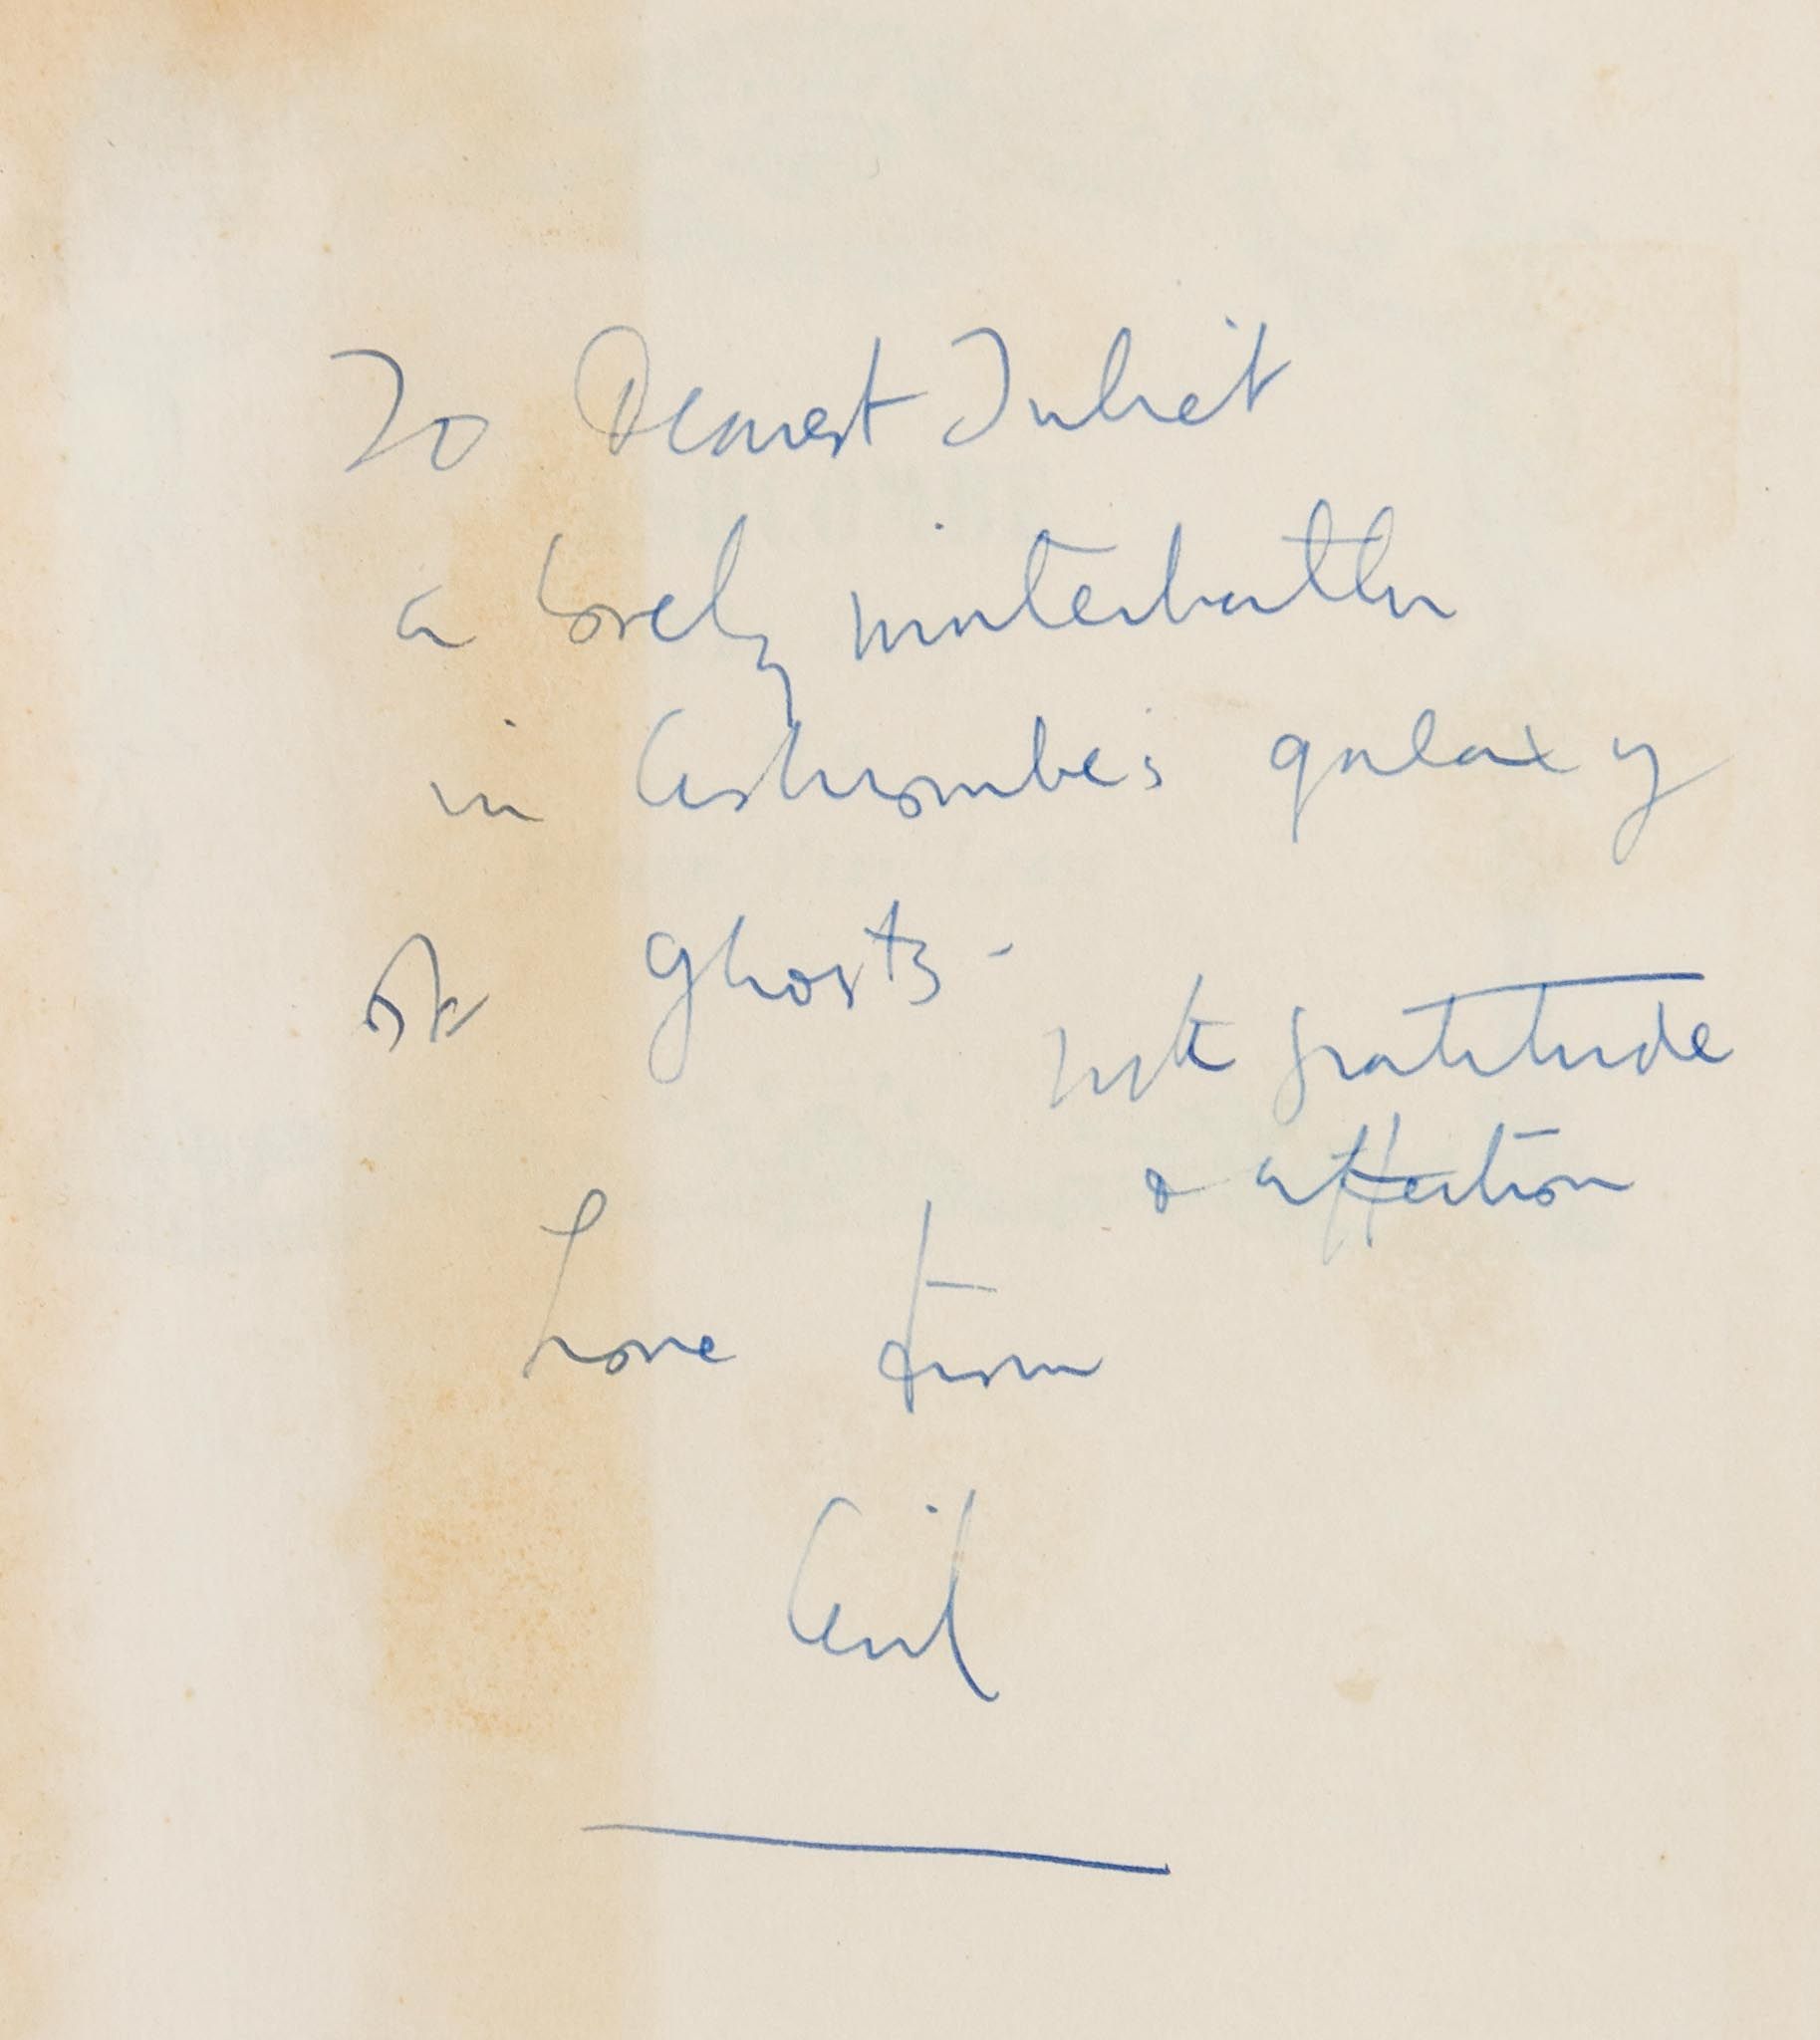 To Dearest Juliet
a lovely winterhalter
in Ashcombe's galaxy
of ghosts -
with gratitude
& affection
Love from
Cecil